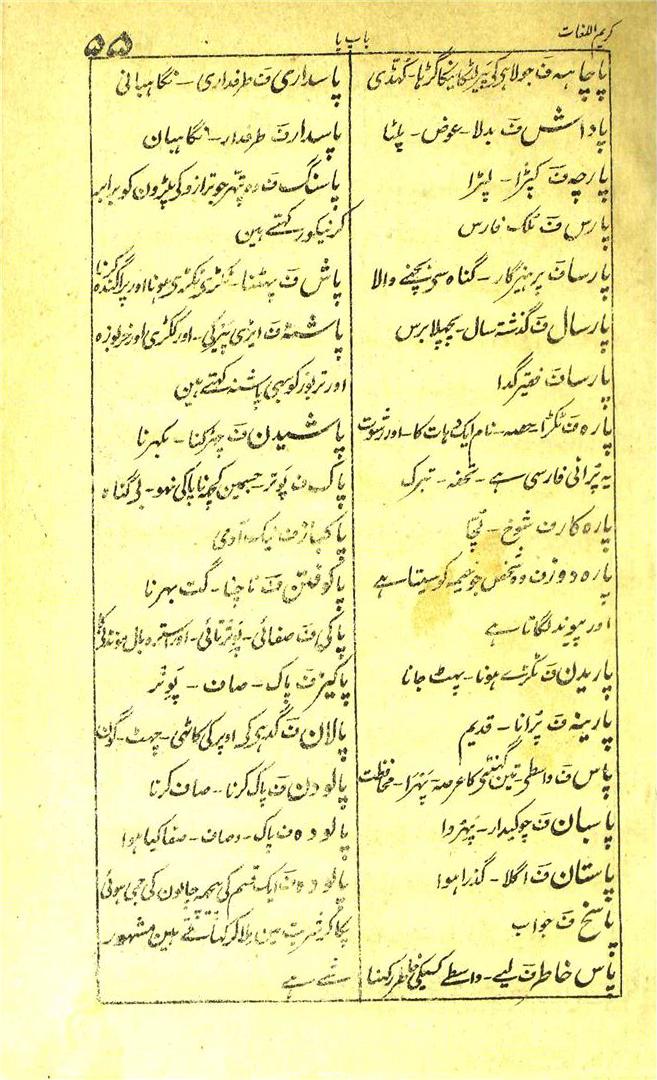 کریم اللغات
باب پا
۵۵
پاچاہہ ف جولاہی کی پیر لٹکانیکا گڑہا - کہڈی
پاداش ف بدلا - عوض - پلٹا
پارچہ ف کپڑا -
پارس ف ملک فارس
پارسا ف پرہیزگار - گناہ سی بچنے والا
پارسال ف گذشتہ سال - پچہلا برس
پارسا ف فقیر گدا
پارہ ف ٹکڑا - حصہ - نام ایک دہات کا - اور رشوت
یہ پُرانی فارسی ہے - تحفہ - تبرک
پارہ کار ف شوخ -
پارہ دوز ف وہ شخص جو خیمہ کو سیتا ہے
اور پیوند لگاتا ہے
پاریدن ف ٹکڑے ہونا - پہٹ جانا
پارینہ ف پُرانا - قدیم
پاس ف واسطی - تین گہنٹی کا عرصہ پَہَرا - محافظت
پاسبان ف چوکیدار - پہردا
پاستان ف اگلا - گذرا ہوا
پاسخ ف جواب
پاس خاطر ف لیے - واسطے کسیکی خاطر رکہنا
پاسداری ف طرفداری - نگاہبانی
پاسدار ف طرفدار - نگاہبان
پاسنگ ف وہ پتہر جو ترازو کی پلڑون کو برابر
کرنیکو رکہتے ہین
پاش ف پہٹنا - ٹکڑی ٹکڑی ہونا اور پراگندہ کرنا
پاشنہ ف ایڑی پیر کی - اور ککڑی اور خربوزہ
اور تربوز کو بہی پاشنہ کہتے ہین
پاشیدن ف چہڑکنا - بکہرنا
پاک ف پَوتر - جسمین کچہہ ناپاکی نہو - بی گناہ
پاکباز ف نیک آدمی
پاکوفتن ف ناچنا - گت بہرنا
پاکی ف صفائی - پَوِتّرتائی - اور استرہ بال مونڈنیکا
پاکیز ف پاک - صاف - پَوِتّر
پالان ف گدہی کی اوپر کی کاٹہی -
پالودن ف پاک کرنا - صاف کرنا
پالودہ ف پاک - وصاف - صفا کیا ہوا
پالودہ ف ایک قسم کی ہیمہ چانون کی جمی ہوئی
پکا کر شربت مین ملا کر کہاتے ہین مشہور
شے ہے